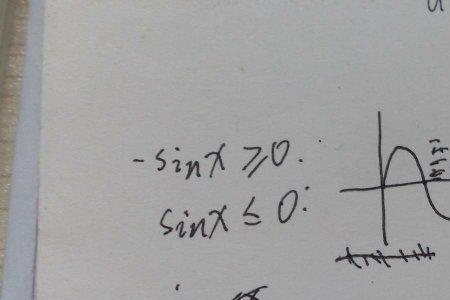 -sinx ⩾ 0.
sinx ≤ 0: